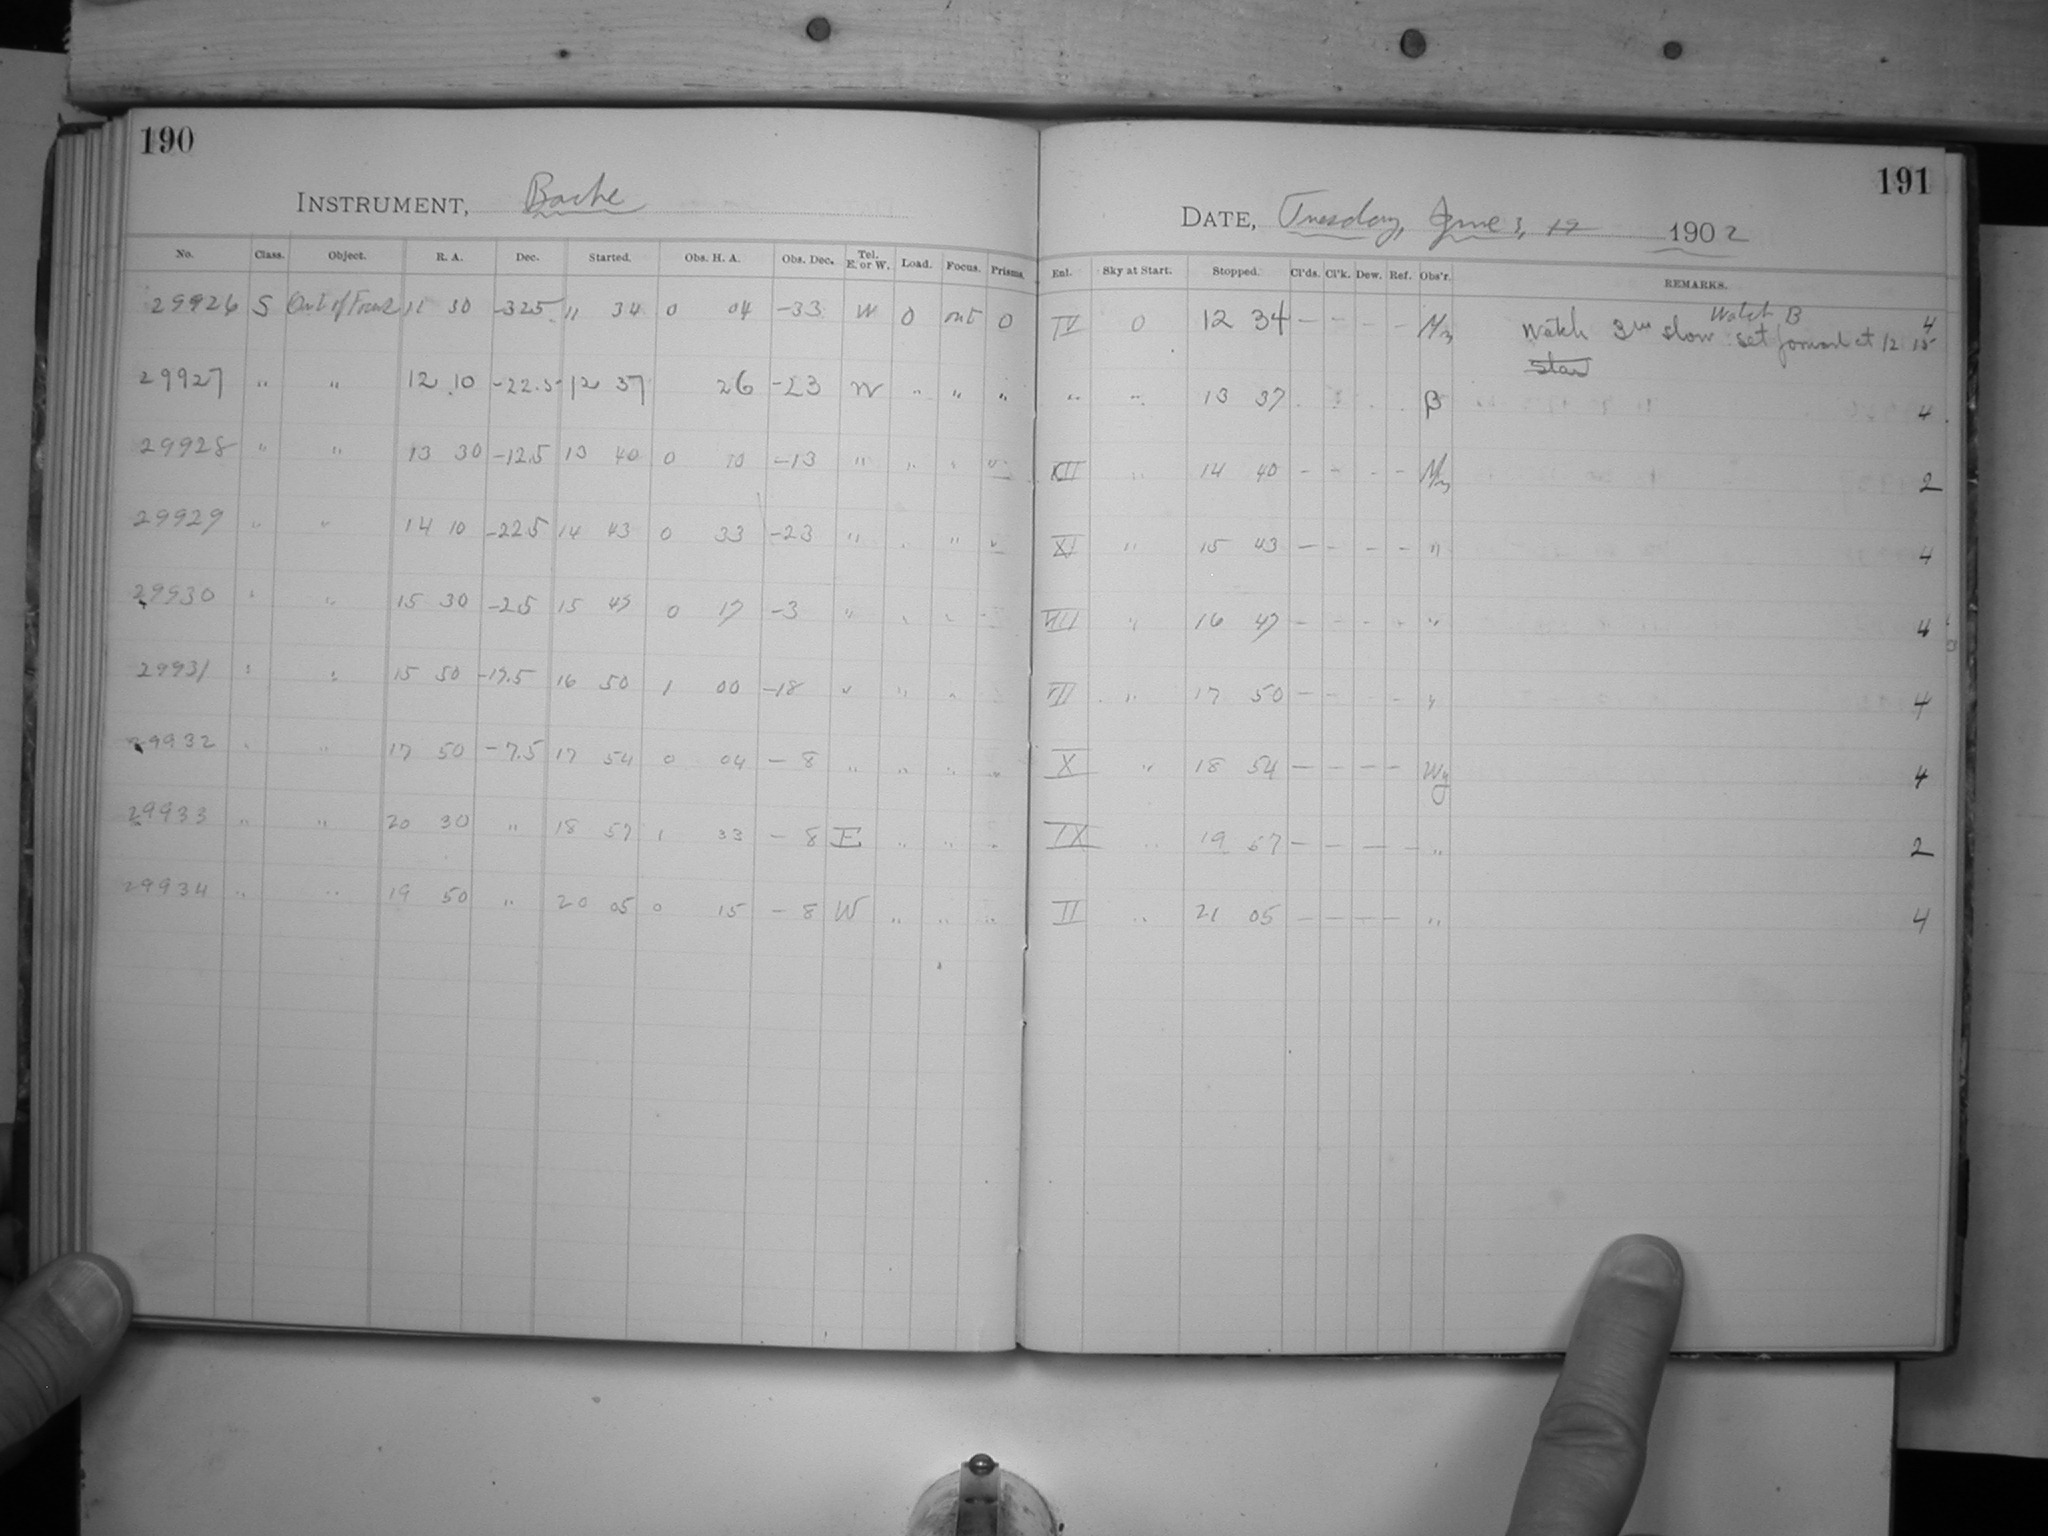 190
INSTRUMENT, Bache
No. Class. Object. R. A. Dec. Started. Obs. H. A. Obs. Dec. Tel. E. or W. Load. Focus. Prisms.
29926 S Out of Focus 11 30 -32.5 11 34 0 04 -33 W 0 out 0
29927 " " 12 10 -22.5 12 37 26 -23 W " " "
29928 " " 13 30 -12.5 13 40 0 10 -13 " " " "
29929 " " 14 10 -22.5 14 43 0 33 -23 " " " "
29930 " " 15 30 -2.5 15 47 0 17 -3 " " "
29931 " " 15 50 -17.5 16 50 1 00 -18 " " "
29932 " " 17 50 -7.5 17 54 0 04 -8 " " " "
29933 " " 20 30 " 18 57 1 33 -8 E " " "
29934 " " 19 50 " 20 05 0 15 -8 W " " "
191
DATE, Tuesday, June 3, 17 1902
Enl. Sky at Start. Stopped. Cl'ds. Cl'k. Dew. Ref. Obs'r. REMARKS.
Watch B
IV 0 12 34 - - - - My Watch 3m slow set forward at 12 15 4
" " 13 37 B 4
XII " 14 40 - - - - My 2
XI " 15 43 - - - - " 4
VIII " 16 47 - - - - " 4
VII " 17 50 - - - " 4
X " 18 54 - - - - Wy 4
IX " 19 57 - - - - " 2
II " 21 05 - - - - " 4